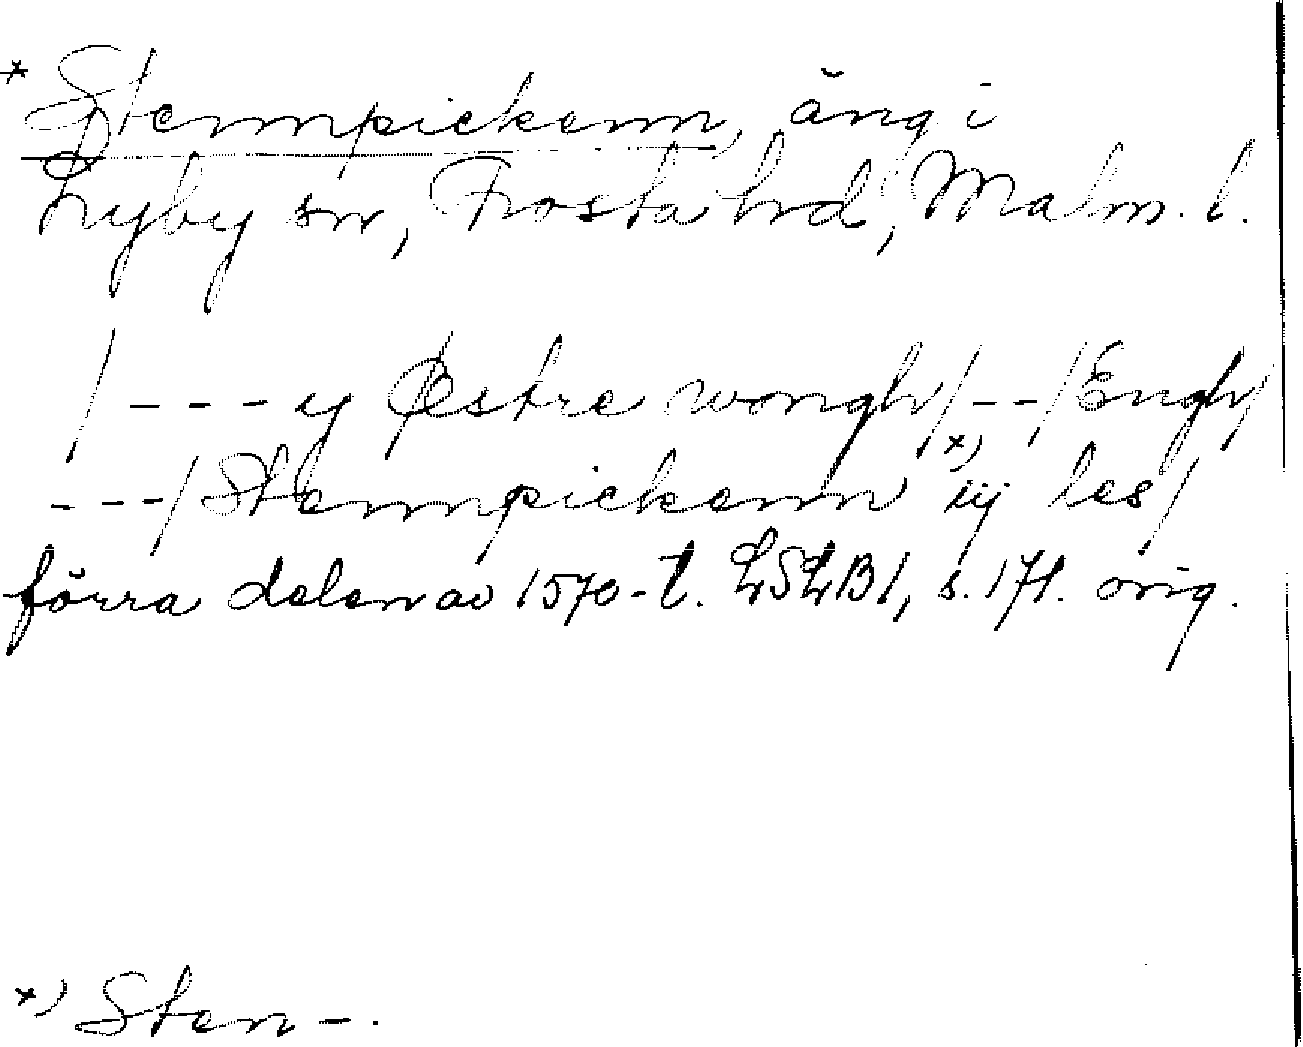 * Stennpickenn, äng i
Lyby sn, Frosta hd, Malm. l.
/ - - - y Østre wongh / - - / Engh /
- - - / Stennpickenn x) iij les /
förra delen av 1570-t. LSLB1, s. 171. orig.
x) Sten - .